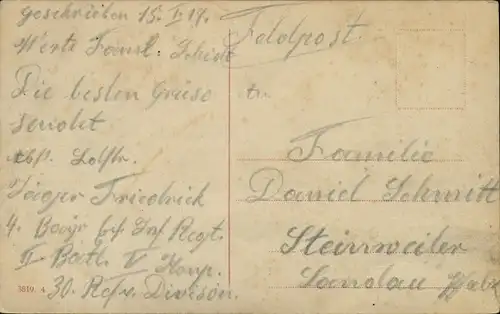 geschrieben 15. I. 17.
Werte Faml. Schmitt
Die besten Grüse
sendet
Abs.
Jäger Friedrich
4. Bayr. Inf. Regt.
II Batl. V Komp.
30. Resv. Divison.
3819. A
Feldpost
An
Familie
Daniel Schmitt
Steinweiler
Landau Pfalz